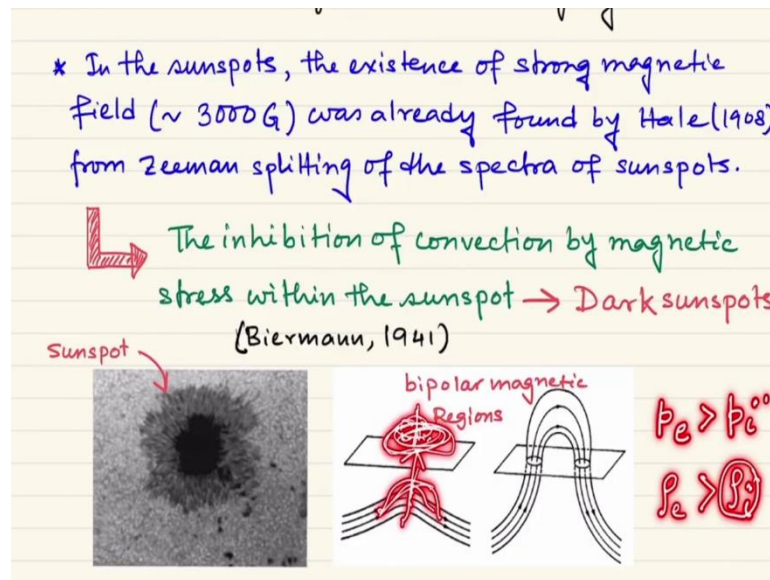 * In the sunspots, the existence of strong magnetic
field (~ 3000 G) was already found by Hale (1908)
from Zeeman splitting of the spectra of sunspots.
The inhibition of convection by magnetic
stress within the sunspot → Dark sunspots
(Biermann, 1941)
Sunspot
bipolar magnetic
Regions
pe > pi
ρe > ρi